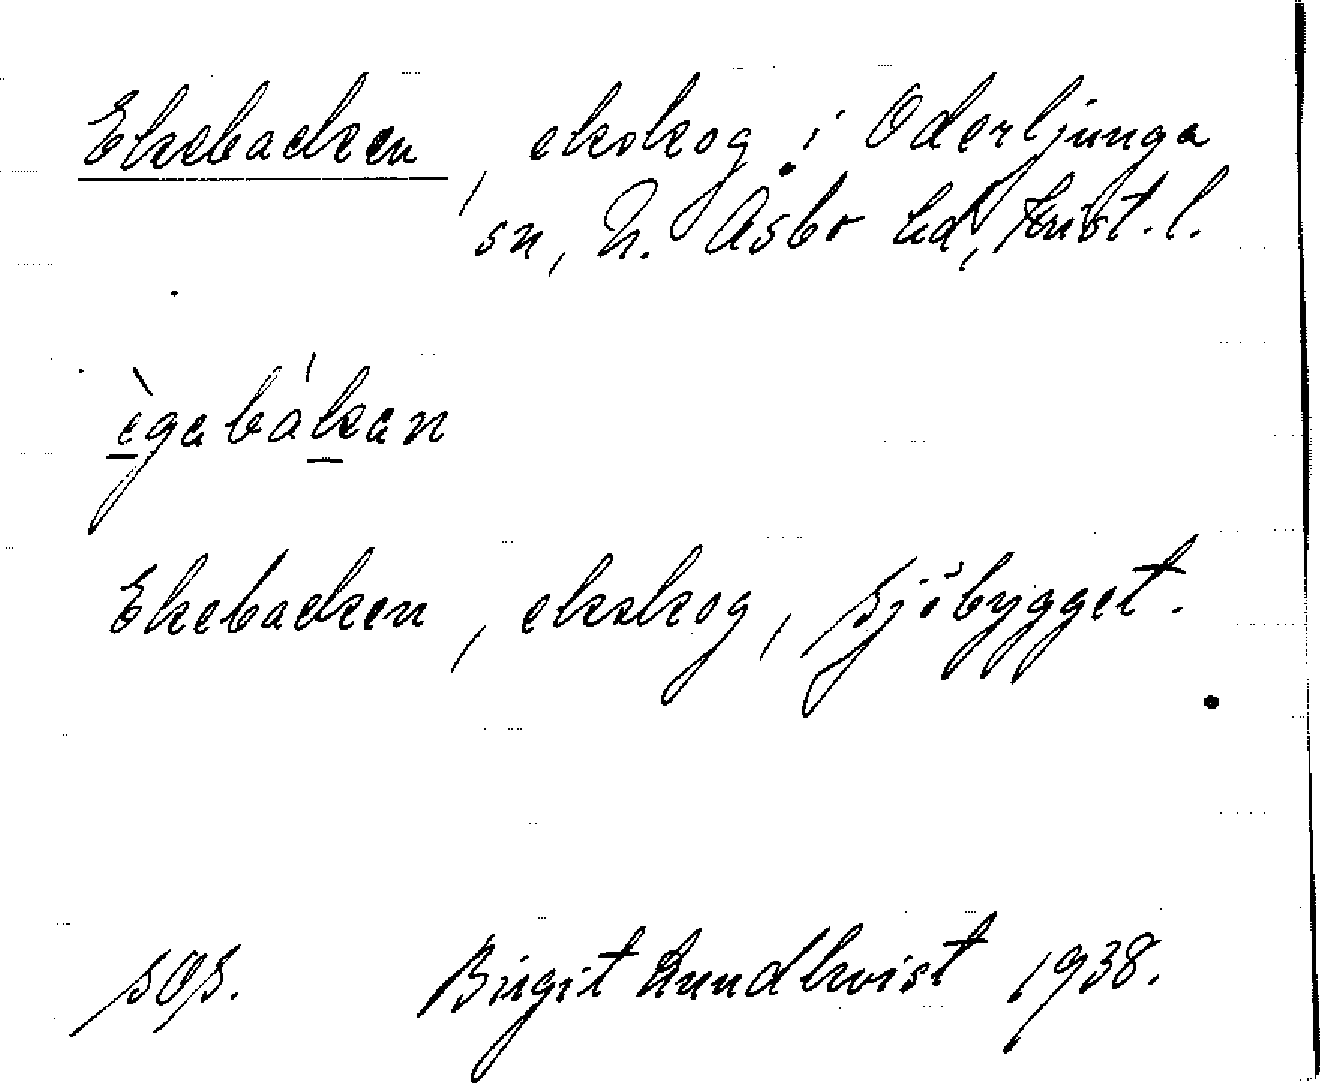 Ekebacken, ekskog i Oderljunga
sn, N. Åsbo hd, Krist. l.
ègabákan
Ekebacken, ekskog, Sjöbygget.
SOS. Birgit Lundkvist 1938.